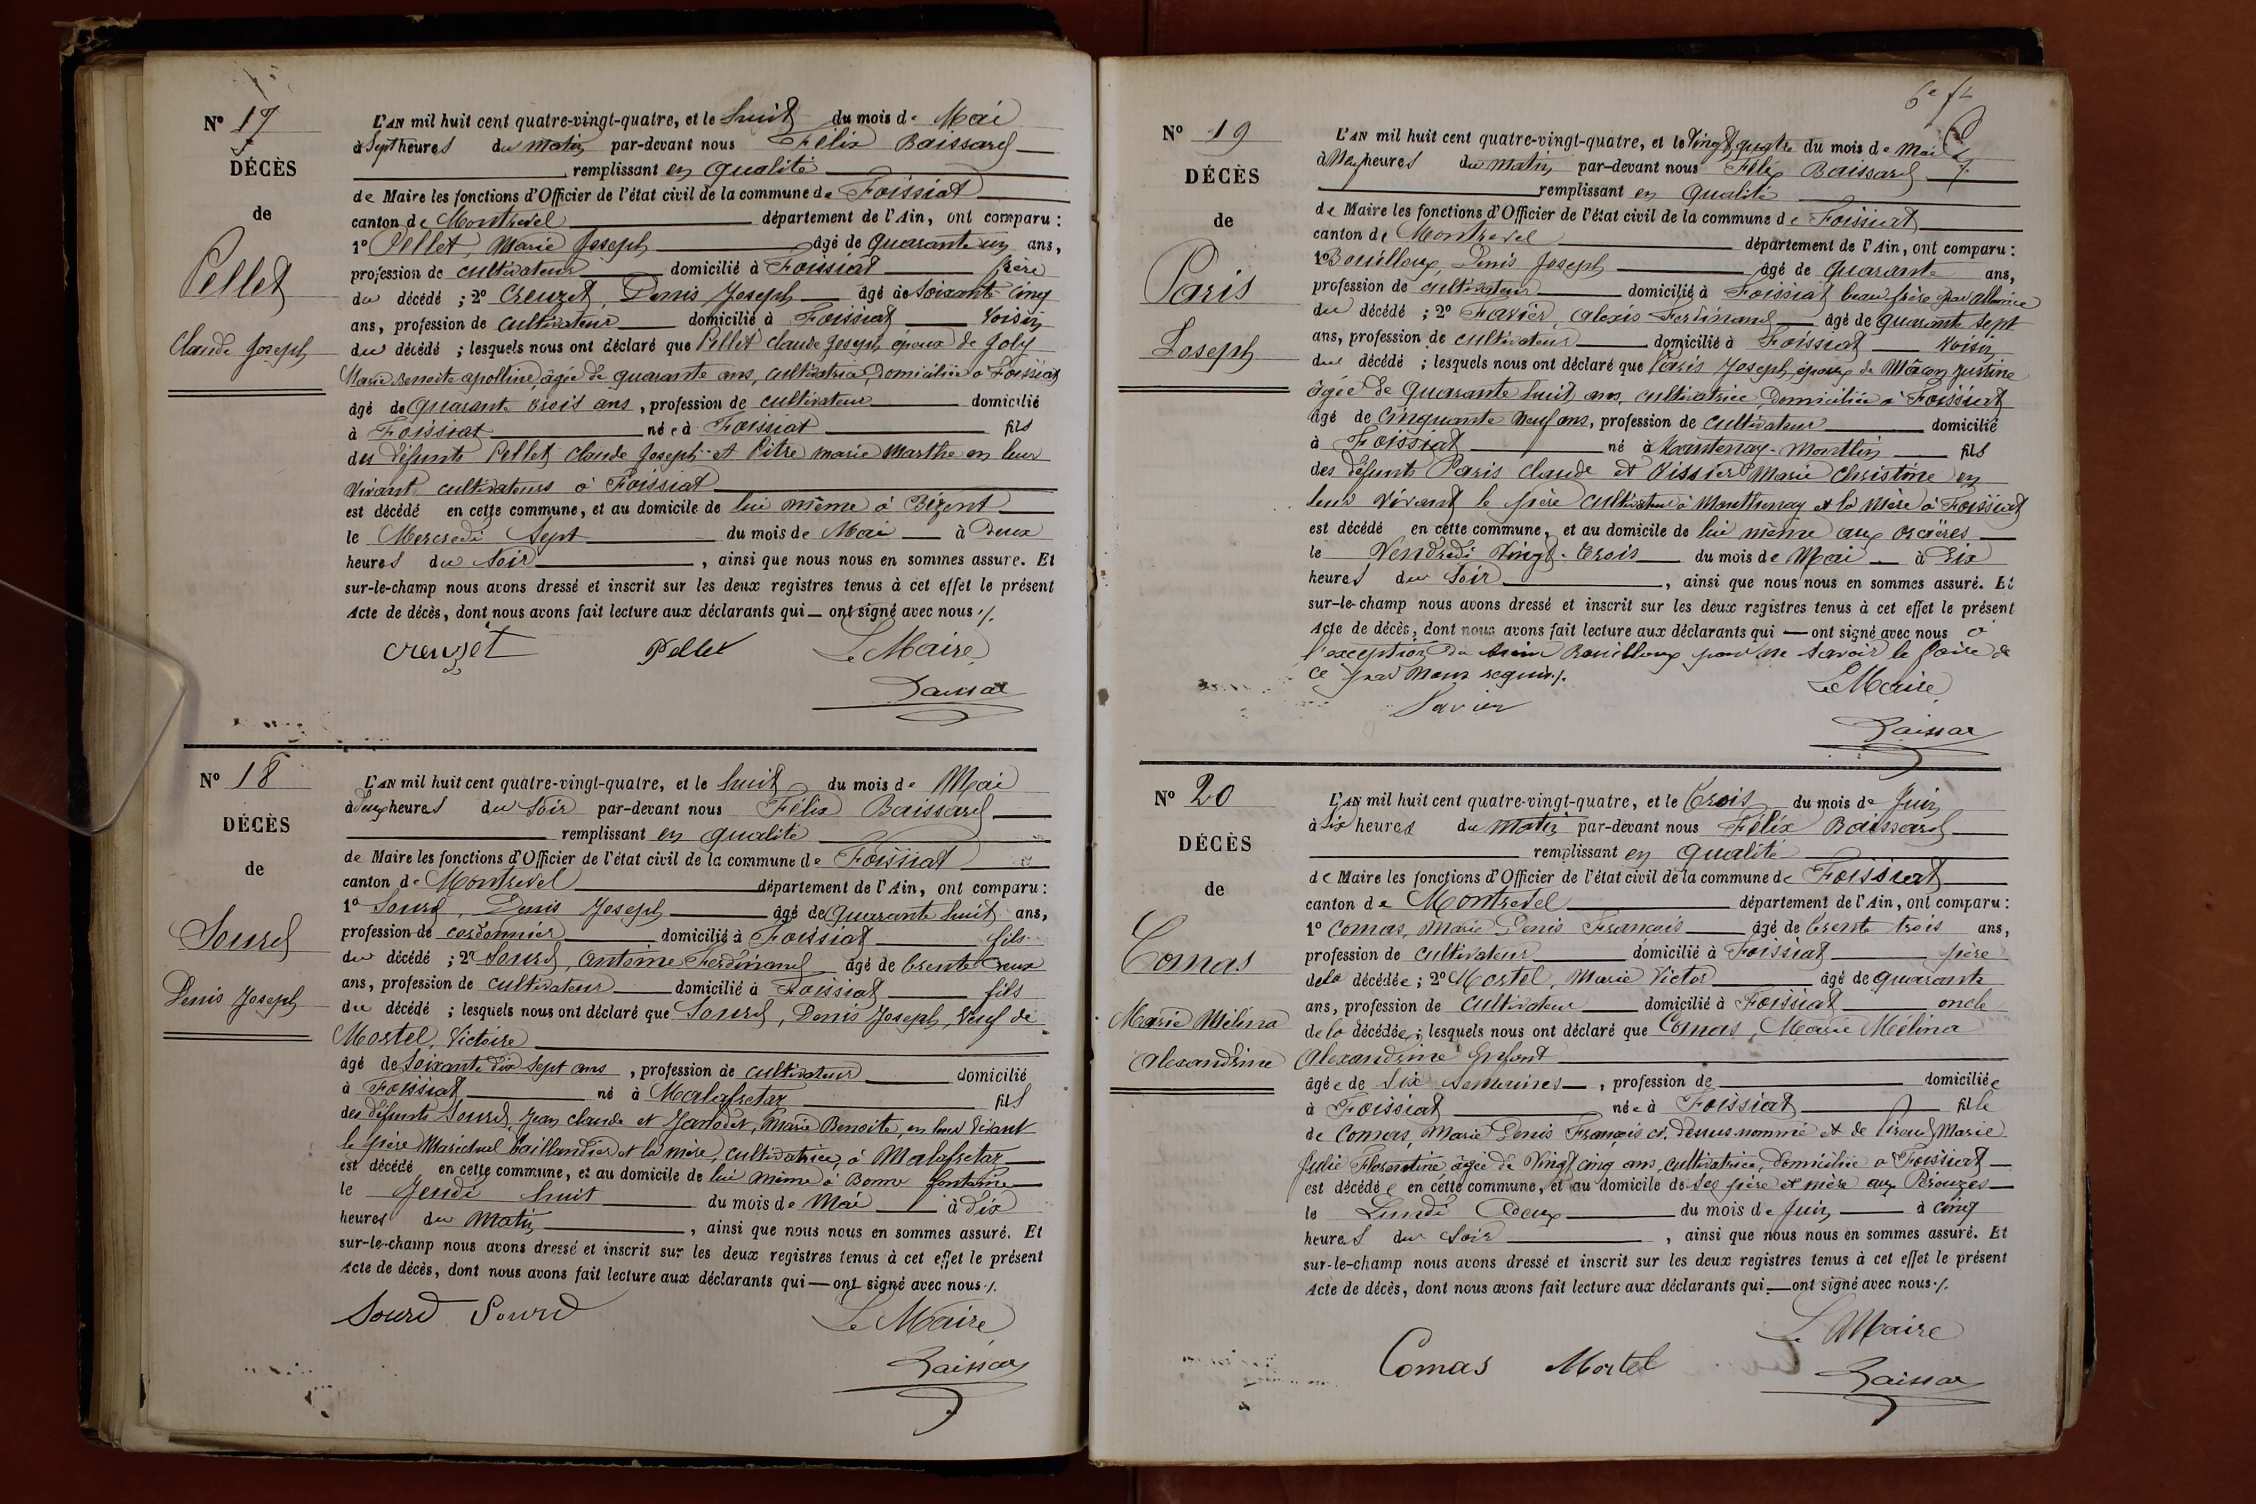 N° 17
DÉCÈS
de
Pellet
Claude Joseph
L'AN mil huit cent quatre-vingt-quatre, et le huit du mois de Mai
à Sept heures du matin par-devant nous Félix Baissard
remplissant en qualité
de Maire les fonctions d'Officier de l'état civil de la commune de Foissiat
canton de Montrevel département de l'Ain, ont comparu :
1° Pellet, Marie Joseph âgé de quarante un ans,
profession de cultivateur domicilié à Foissiat frère
du décédé ; 2° Creuzet, Denis Joseph âgé de soixante cinq
ans, profession de cultivateur domicilié à Foissiat voisin
du décédé ; lesquels nous ont déclaré que Pellet Claude Joseph époux de Joly
Marie Benoite apolline âgée de quarante ans, cultivatrice, domiciliée à Foissiat
âgé de quarante trois ans, profession de cultivateur domicilié
à Foissiat né à Foissiat fils
des défunts Pellet Claude Joseph et Pitre marie Marthe en leur
vivant cultivateurs à Foissiat
est décédé en cette commune, et au domicile de lui même à Bizont
le Mercredi Sept du mois de Mai à Deux
heures du soir, ainsi que nous nous en sommes assuré. Et
sur-le-champ nous avons dressé et inscrit sur les deux registres tenus à cet effet le présent
Acte de décès, dont nous avons fait lecture aux déclarants qui — ont signé avec nous ./.
Creuzet Pellet Le Maire
Baissard
N° 18
DÉCÈS
de
Sourd
Denis Joseph
L'AN mil huit cent quatre-vingt-quatre, et le huit du mois de Mai
à Deux heures du Soir par-devant nous Félix Baissard
remplissant en qualité
de Maire les fonctions d'Officier de l'état civil de la commune de Foissiat
canton de Montrevel département de l'Ain, ont comparu :
1° Sourd, Denis Joseph âgé de quarante huit ans,
profession de cordonnier domicilié à Foissiat fils
du décédé ; 2° Sourd, antoine Ferdinand âgé de trente Deux
ans, profession de cultivateur domicilié à Foissiat fils
du décédé ; lesquels nous ont déclaré que Sourd, Denis Joseph, Veuf de
Mortel, Victoire
âgé de soixante dix sept ans, profession de cultivateur domicilié
à Foissiat né à Malafretaz fils
des défunts Sourd, Jean claude et Janodet, Marie Benoite, en leur vivant
le père Maréchal taillandier et la mère, cultivatrice, à Malafretaz
est décédé en cette commune, et au domicile de lui même à Bonne fontaine
le Jeudi huit du mois de Mai à Dix
heures du Matin, ainsi que nous nous en sommes assuré. Et
sur-le-champ nous avons dressé et inscrit sur les deux registres tenus à cet effet le présent
Acte de décès, dont nous avons fait lecture aux déclarants qui — ont signé avec nous ./.
Sourd Sourd Le Maire
Baissard
6e f
N° 19
DÉCÈS
de
Paris
Joseph
L'AN mil huit cent quatre-vingt-quatre, et le Vingt quatre du mois de Mai
à Neuf heures du matin par-devant nous Félix Baissard
remplissant en qualité
de Maire les fonctions d'Officier de l'état civil de la commune de Foissiat
canton de Montrevel département de l'Ain, ont comparu :
1° Bouilloux, Denis Joseph âgé de quarante ans,
profession de cultivateur domicilié à Foissiat beau frère par alliance
du décédé ; 2° Favier, Alexis Ferdinand âgé de quarante sept
ans, profession de cultivateur domicilié à Foissiat voisin
du décédé ; lesquels nous ont déclaré que Paris Joseph, époux de Mâcon Justine
âgée de quarante huit ans, cultivatrice, Domiciliée à Foissiat
âgé de Cinquante Neuf ans, profession de cultivateur domicilié
à Foissiat né à Mantenay-Montlin fils
des défunts Paris Claude et Vissier Marie Christine en
leur vivant le père cultivateur à Manthenay et la mère à Foissiat
est décédé en cette commune, et au domicile de lui même aux orcières
le Vendredi Vingt-trois du mois de Mai à Dix
heures du Soir, ainsi que nous nous en sommes assuré. Et
sur-le-champ nous avons dressé et inscrit sur les deux registres tenus à cet effet le présent
Acte de décès, dont nous avons fait lecture aux déclarants qui — ont signé avec nous à
l'exception du Bouilloux pour ne savoir le faire de
ce par nous requis ./.
Le Maire
Favier
Baissard
N° 20
DÉCÈS
de
Comas
Marie Mélina
alexandrine
L'AN mil huit cent quatre-vingt-quatre, et le trois du mois de Juin
à Six heures du matin par-devant nous Félix Baissard
remplissant en qualité
de Maire les fonctions d'Officier de l'état civil de la commune de Foissiat
canton de Montrevel département de l'Ain, ont comparu :
1° Comas, Marie Denis François âgé de trente trois ans,
profession de cultivateur domicilié à Foissiat père
de la décédée ; 2° Mortel, Marie Victor âgé de quarante
ans, profession de cultivateur domicilié à Foissiat oncle
de la décédée ; lesquels nous ont déclaré que Comas, Marie Mélina
Alexandrine Enfant
âgée de Six semaines, profession de domiciliée
à Foissiat née à Foissiat fille
de Comas, Marie Denis François ci dessus nommé et de Pireud Marie
Julie Florentine âgée de Vingt cinq ans, cultivatrice, domiciliée à Foissiat
est décédée en cette commune, et au domicile de ses père et mère aux Brouzes
le Lundi Deux du mois de Juin à cinq
heures du Soir, ainsi que nous nous en sommes assuré. Et
sur-le-champ nous avons dressé et inscrit sur les deux registres tenus à cet effet le présent
Acte de décès, dont nous avons fait lecture aux déclarants qui — ont signé avec nous ./.
Le Maire
Comas Mortel
Baissard